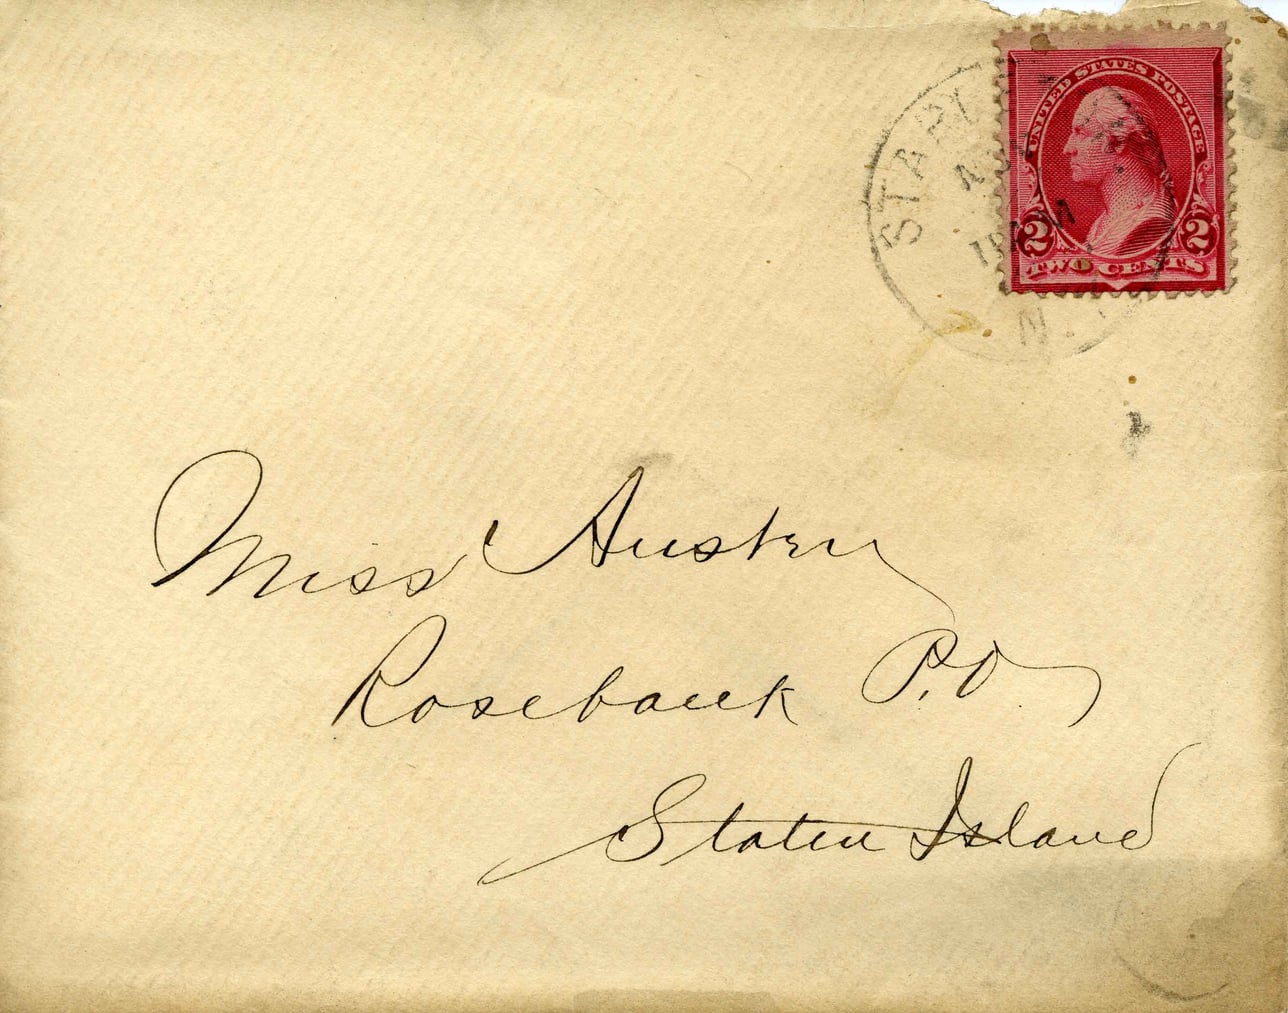 UNITED STATES POSTAGE
2 2
TWO CENTS
N.Y.
Miss Austen
Rosebank P.O
Staten Island